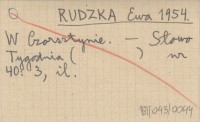 RUDZKA Ewa 1954.
W Czorsztynie. — Słowo
Tygodnia ( ) nr
40. 3, il.